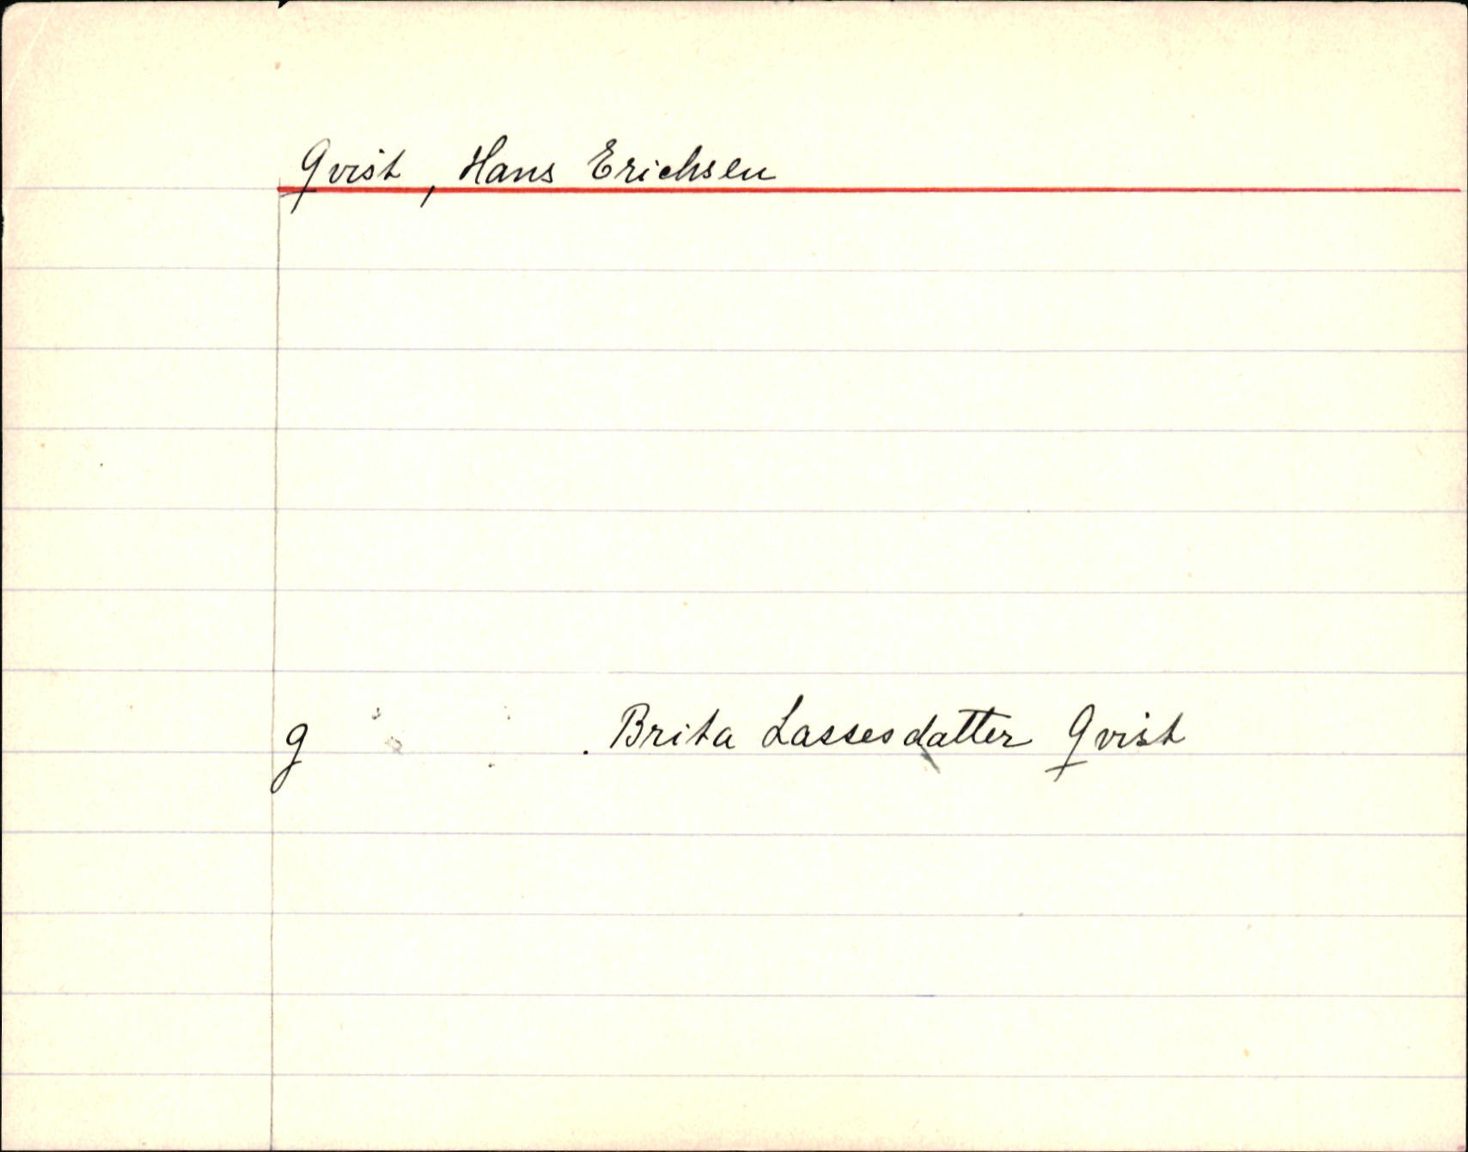 Qvist, Hans Erichsen
g . Brita Lassesdatter Qvist